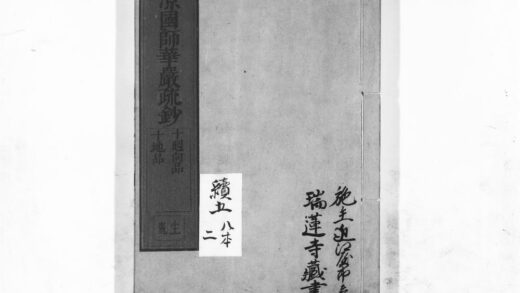 涼國師華嚴疏鈔
十廻向品
十地品
續五 八本
二
施主
瑞蓮寺藏書